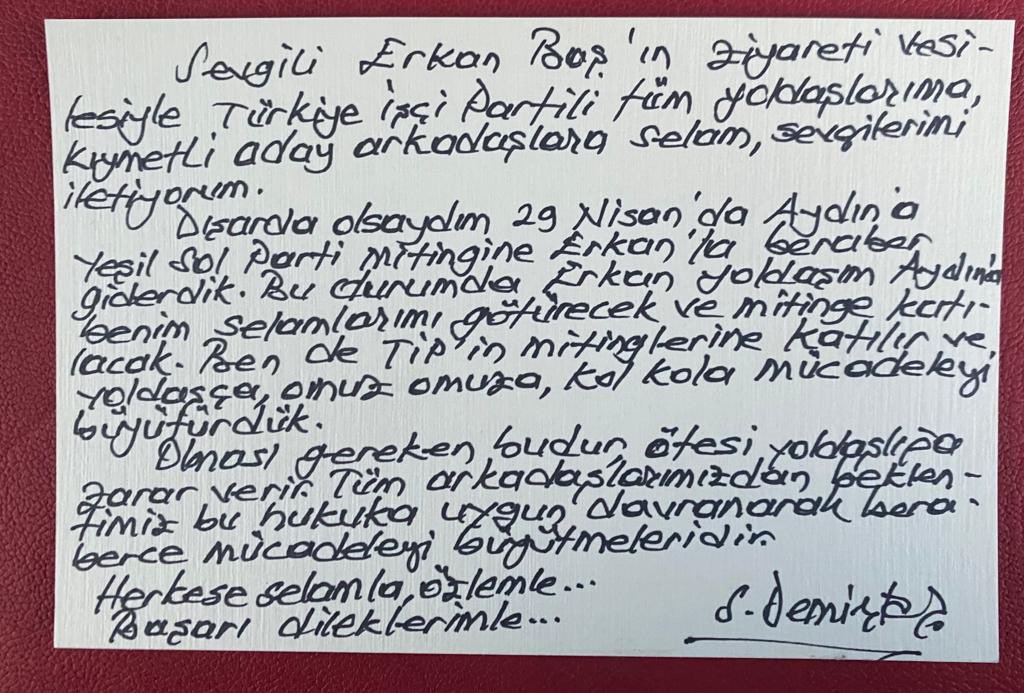 Sevgili Erkan Baş'ın ziyareti vesi-
lesiyle Türkiye İşçi Partili tüm yoldaşlarıma,
kıymetli aday arkadaşlara selam, sevgilerimi
iletiyorum.
Dışarda olsaydım 29 Nisan'da Aydın'a
Yeşil Sol Parti mitingine Erkan'la beraber
giderdik. Bu durumda Erkan yoldaşım Aydın'a
benim selamlarımı götürecek ve mitinge katı-
lacak. Ben de TİP'in mitinglerine katılır ve
yoldaşça, omuz omuza, kol kola mücadeleyi
büyütürdük.
Olması gereken budur, ötesi yoldaşlığa
zarar verir. Tüm arkadaşlarımızdan beklen-
timiz bu hukuka uygun davranarak bera-
berce mücadeleyi büyütmeleridir.
Herkese selamla, özlemle...
Başarı dileklerimle...
S. Demirtaş